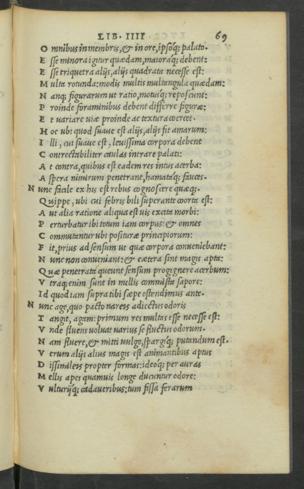 LIB. IIII 69
O mnibus in membris, & in ore, ipsoq; palato.
E sse minora igitur quædam, maioraq; debent:
E sse triquetra alijs, alijs quadrata necesse est:
M ulta rotunda: modis multis multangula quædam:
N anq; figurarum ut ratio, motusq; reposcunt:
P roinde foraminibus debent differre figuræ:
E t uariare uiæ proinde ac textura coercet.
H oc ubi quod suaue est alijs, alijs fit amarum:
I lli, cui suaue est, leuissima corpora debent
C ontrectabiliter caulas intrare palati:
A t contra, quibus est eadem res intus acerba:
A spera nimirum penetrant, hamataq; fauces.
N unc facile ex his est rebus cognoscere quæq;.
Q uippe, ubi cui febris bili superante coorta est:
A ut alia ratione aliqua est uis excita morbi:
P erturbatur ibi totum iam corpus: & omnes
C ommutantur ubi posituræ principiorum:
F it, prius ad sensum ut quæ corpora conueniebant:
N unc non conueniant: & cætera sint magis apta:
Q uæ penetrata queunt sensum progignere acerbum:
V traq; enim sunt in mellis commista sapore:
Id quod iam supra tibi sæpe ostendimus ante.
N unc age, quo pacto nares adiectus odoris
T angit, agam: primum res multas esse necesse est:
V nde fluens uoluat uarius se fluctus odorum.
N am fluere, & mitti uulgo, spargiq; putandum est.
V erum alijs alius magis est animantibus aptus
D issimileis propter formas: ideoq; per auras
M ellis apes quamuis longe ducuntur odore:
V ulturijq; cadaueribus: tum fissa ferarum